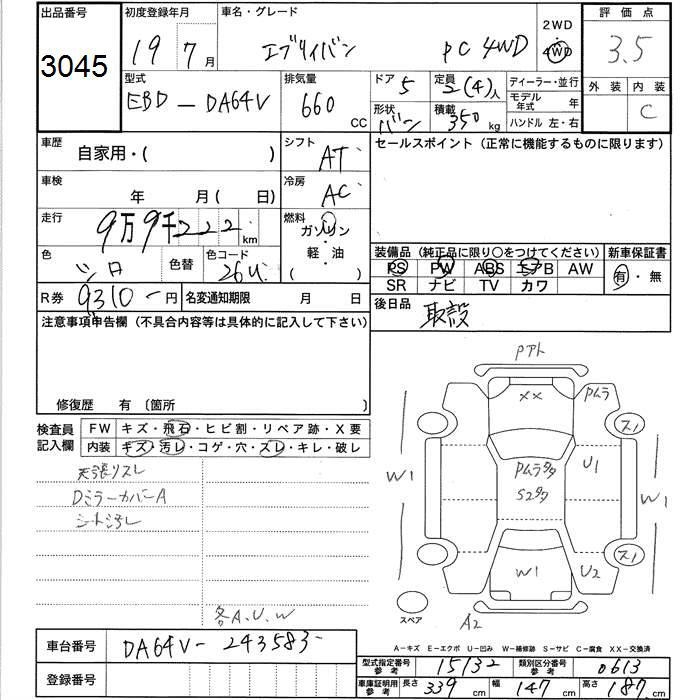 出品番号 初度登録年月 車名・グレード 2WD 評価点
3045 19年7月 エブリイバン PC 4WD 4WD 3.5
型式 EBD-DA64V 排気量 660CC ドア 5 定員 2(4)人 ディーラー・並行 外装 内装
形状 バン 積載 350kg モデル年式 年 C
ハンドル 左・右
車歴 自家用・( ) シフト AT セールスポイント(正常に機能するものに限ります)
車検 年 月( 日) 冷房 AC
走行 9万9千222km 燃料 ガソリン・軽油( )
色 シロ 色替 色コード 26U 装備品(純正品に限り○をつけてください) 新車保証書
PS PW ABS エアB AW 有・無
SR ナビ TV カワ
R券 9310-円 名変通知期限 月 日 後日品 取説
注意事項申告欄(不具合内容等は具体的に記入して下さい)
修復歴 有〔箇所 〕
検査員記入欄 FW キズ・飛石・ヒビ割・リペア跡・X要
内装 キズ・汚レ・コゲ・穴・スレ・キレ・破レ
天張リスレ
DミラーカバーA
シート汚レ
各A.U.W
Pアト
XX
Pムラ
スノ
W1
Pムラタタ
S2タタ
U1
W1
スノ
W1
U2
スペア
A2
A-キズ E-エクボ U-凹み W-補修跡 S-サビ C-腐食 XX-交換済
車台番号 DA64V-243583-
登録番号
型式指定番号 参考 15132 類別区分番号 参考 0613
車庫証明用 参考 長さ 339cm 幅 147cm 高さ 187cm